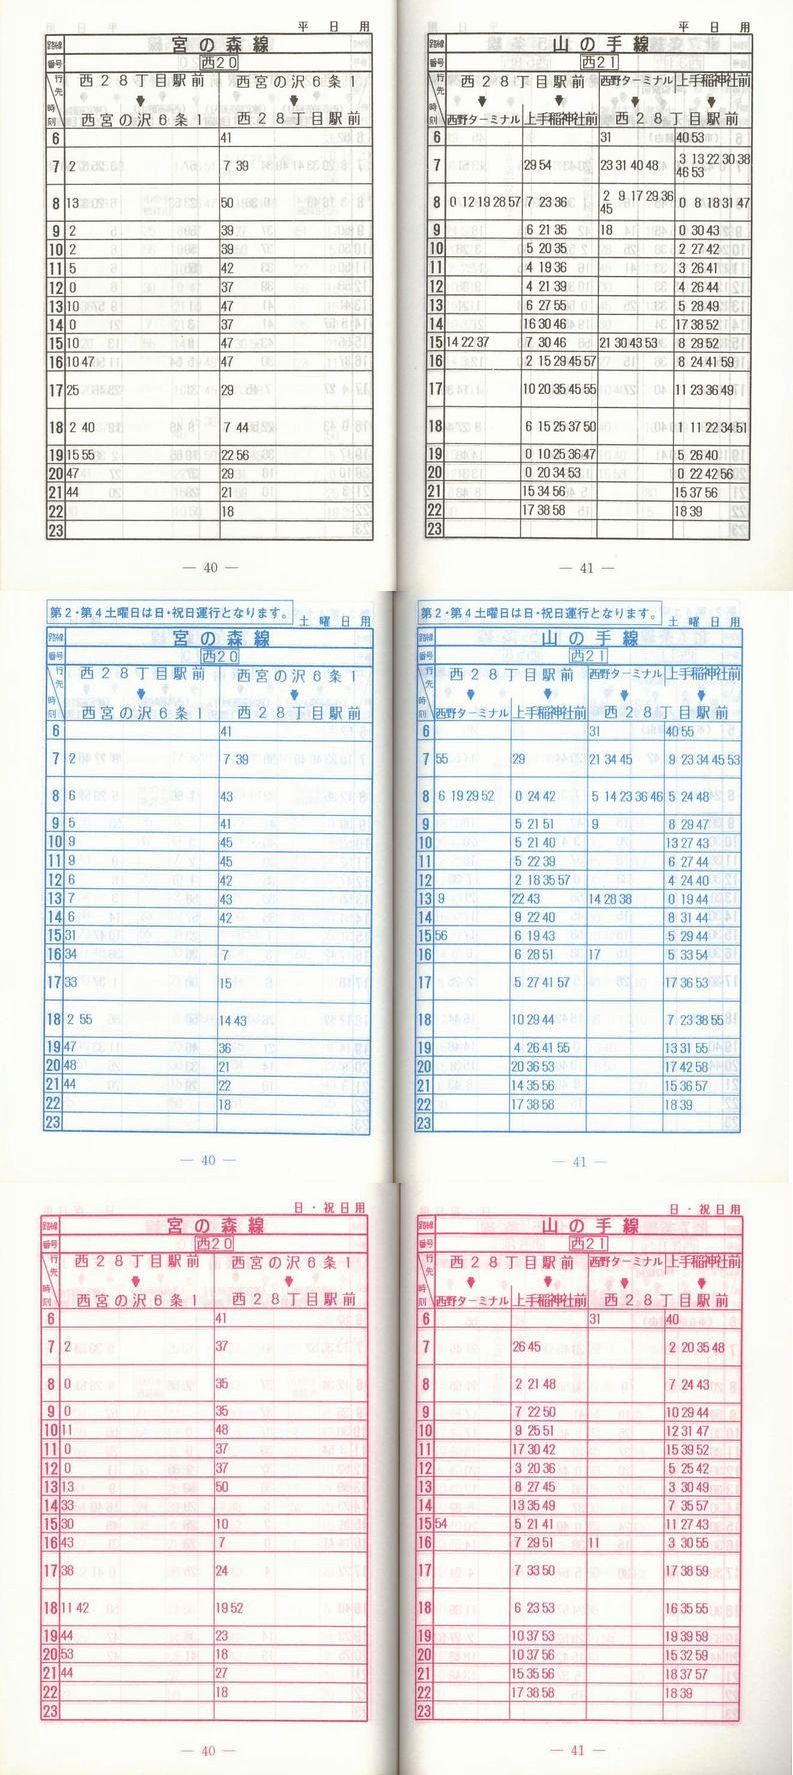 平日用
路線 宮の森線
番号 西20
行先 西28丁目駅前 西宮の沢6条1
時刻 西宮の沢6条1 西28丁目駅前
6 41
7 2 7 39
8 13 50
9 2 39
10 2 39
11 5 42
12 0 37
13 10 47
14 0 37
15 10 47
16 10 47 30
17 25 29
18 2 40 7 44
19 15 55 22 56
20 47 29
21 44 21
22 18
23
— 40 —
平日用
路線 山の手線
番号 西21
行先 西28丁目駅前 西野ターミナル 上手稲神社前
時刻 西野ターミナル 上手稲神社前 西28丁目駅前
6 31 40 53
7 29 54 23 31 40 48 3 13 22 30 38
46 53
8 0 12 19 28 57 7 23 36 2 9 17 29 36 0 8 18 31 47
45
9 6 21 35 18 0 30 43
10 5 20 35 2 27 42
11 4 19 36 3 26 41
12 4 21 39 4 26 44
13 6 27 55 5 28 49
14 16 30 46 17 38 52
15 14 22 37 7 30 46 21 30 43 53 8 29 52
16 2 15 29 45 57 8 24 41 59
17 10 20 35 45 55 11 23 36 49
18 6 15 25 37 50 1 11 22 34 51
19 0 10 25 36 47 5 26 40
20 0 20 34 53 0 22 42 56
21 15 34 56 15 37 56
22 17 38 58 18 39
23
— 41 —
第2・第4土曜日は日・祝日運行となります。 土曜日用
路線 宮の森線
番号 西20
行先 西28丁目駅前 西宮の沢6条1
時刻 西宮の沢6条1 西28丁目駅前
6 41
7 2 7 39
8 6 43
9 5 41
10 9 45
11 9 45
12 6 42
13 7 43
14 6 42
15 31
16 34 7
17 33 15
18 2 55 14 43
19 47 36
20 48 21
21 44 22
22 18
23
— 40 —
第2・第4土曜日は日・祝日運行となります。 土曜日用
路線 山の手線
番号 西21
行先 西28丁目駅前 西野ターミナル 上手稲神社前
時刻 西野ターミナル 上手稲神社前 西28丁目駅前
6 31 40 55
7 55 29 21 34 45 9 23 34 45 53
8 6 19 29 52 0 24 42 5 14 23 36 46 5 24 48
9 5 21 51 9 8 29 47
10 5 21 40 13 27 43
11 5 22 39 6 27 44
12 2 18 35 57 4 24 40
13 9 22 43 14 28 38 0 19 44
14 9 22 40 8 31 44
15 56 6 19 43 5 29 44
16 6 28 51 17 5 33 54
17 5 27 41 57 17 36 53
18 10 29 44 7 23 38 55
19 4 26 41 55 13 31 55
20 20 36 53 17 42 58
21 14 35 56 15 36 57
22 17 38 58 18 39
23
— 41 —
日・祝日用
路線 宮の森線
番号 西20
行先 西28丁目駅前 西宮の沢6条1
時刻 西宮の沢6条1 西28丁目駅前
6 41
7 2 37
8 0 35
9 0 35
10 11 48
11 0 37
12 0 37
13 13 50
14 33
15 30 10
16 43 7
17 38 24
18 11 42 19 52
19 44 23
20 53 18
21 44 27
22 18
23
— 40 —
日・祝日用
路線 山の手線
番号 西21
行先 西28丁目駅前 西野ターミナル 上手稲神社前
時刻 西野ターミナル 上手稲神社前 西28丁目駅前
6 31 40
7 26 45 2 20 35 48
8 2 21 48 7 24 43
9 7 22 50 10 29 44
10 9 25 51 12 31 47
11 17 30 42 15 39 52
12 3 20 36 5 25 42
13 8 27 45 3 30 49
14 13 35 49 7 35 57
15 54 5 21 41 11 27 43
16 7 29 51 11 3 30 55
17 7 33 50 17 38 59
18 6 23 53 16 35 55
19 10 37 53 19 39 59
20 10 37 56 15 32 59
21 15 35 56 18 37 57
22 17 38 58 18 39
23
— 41 —